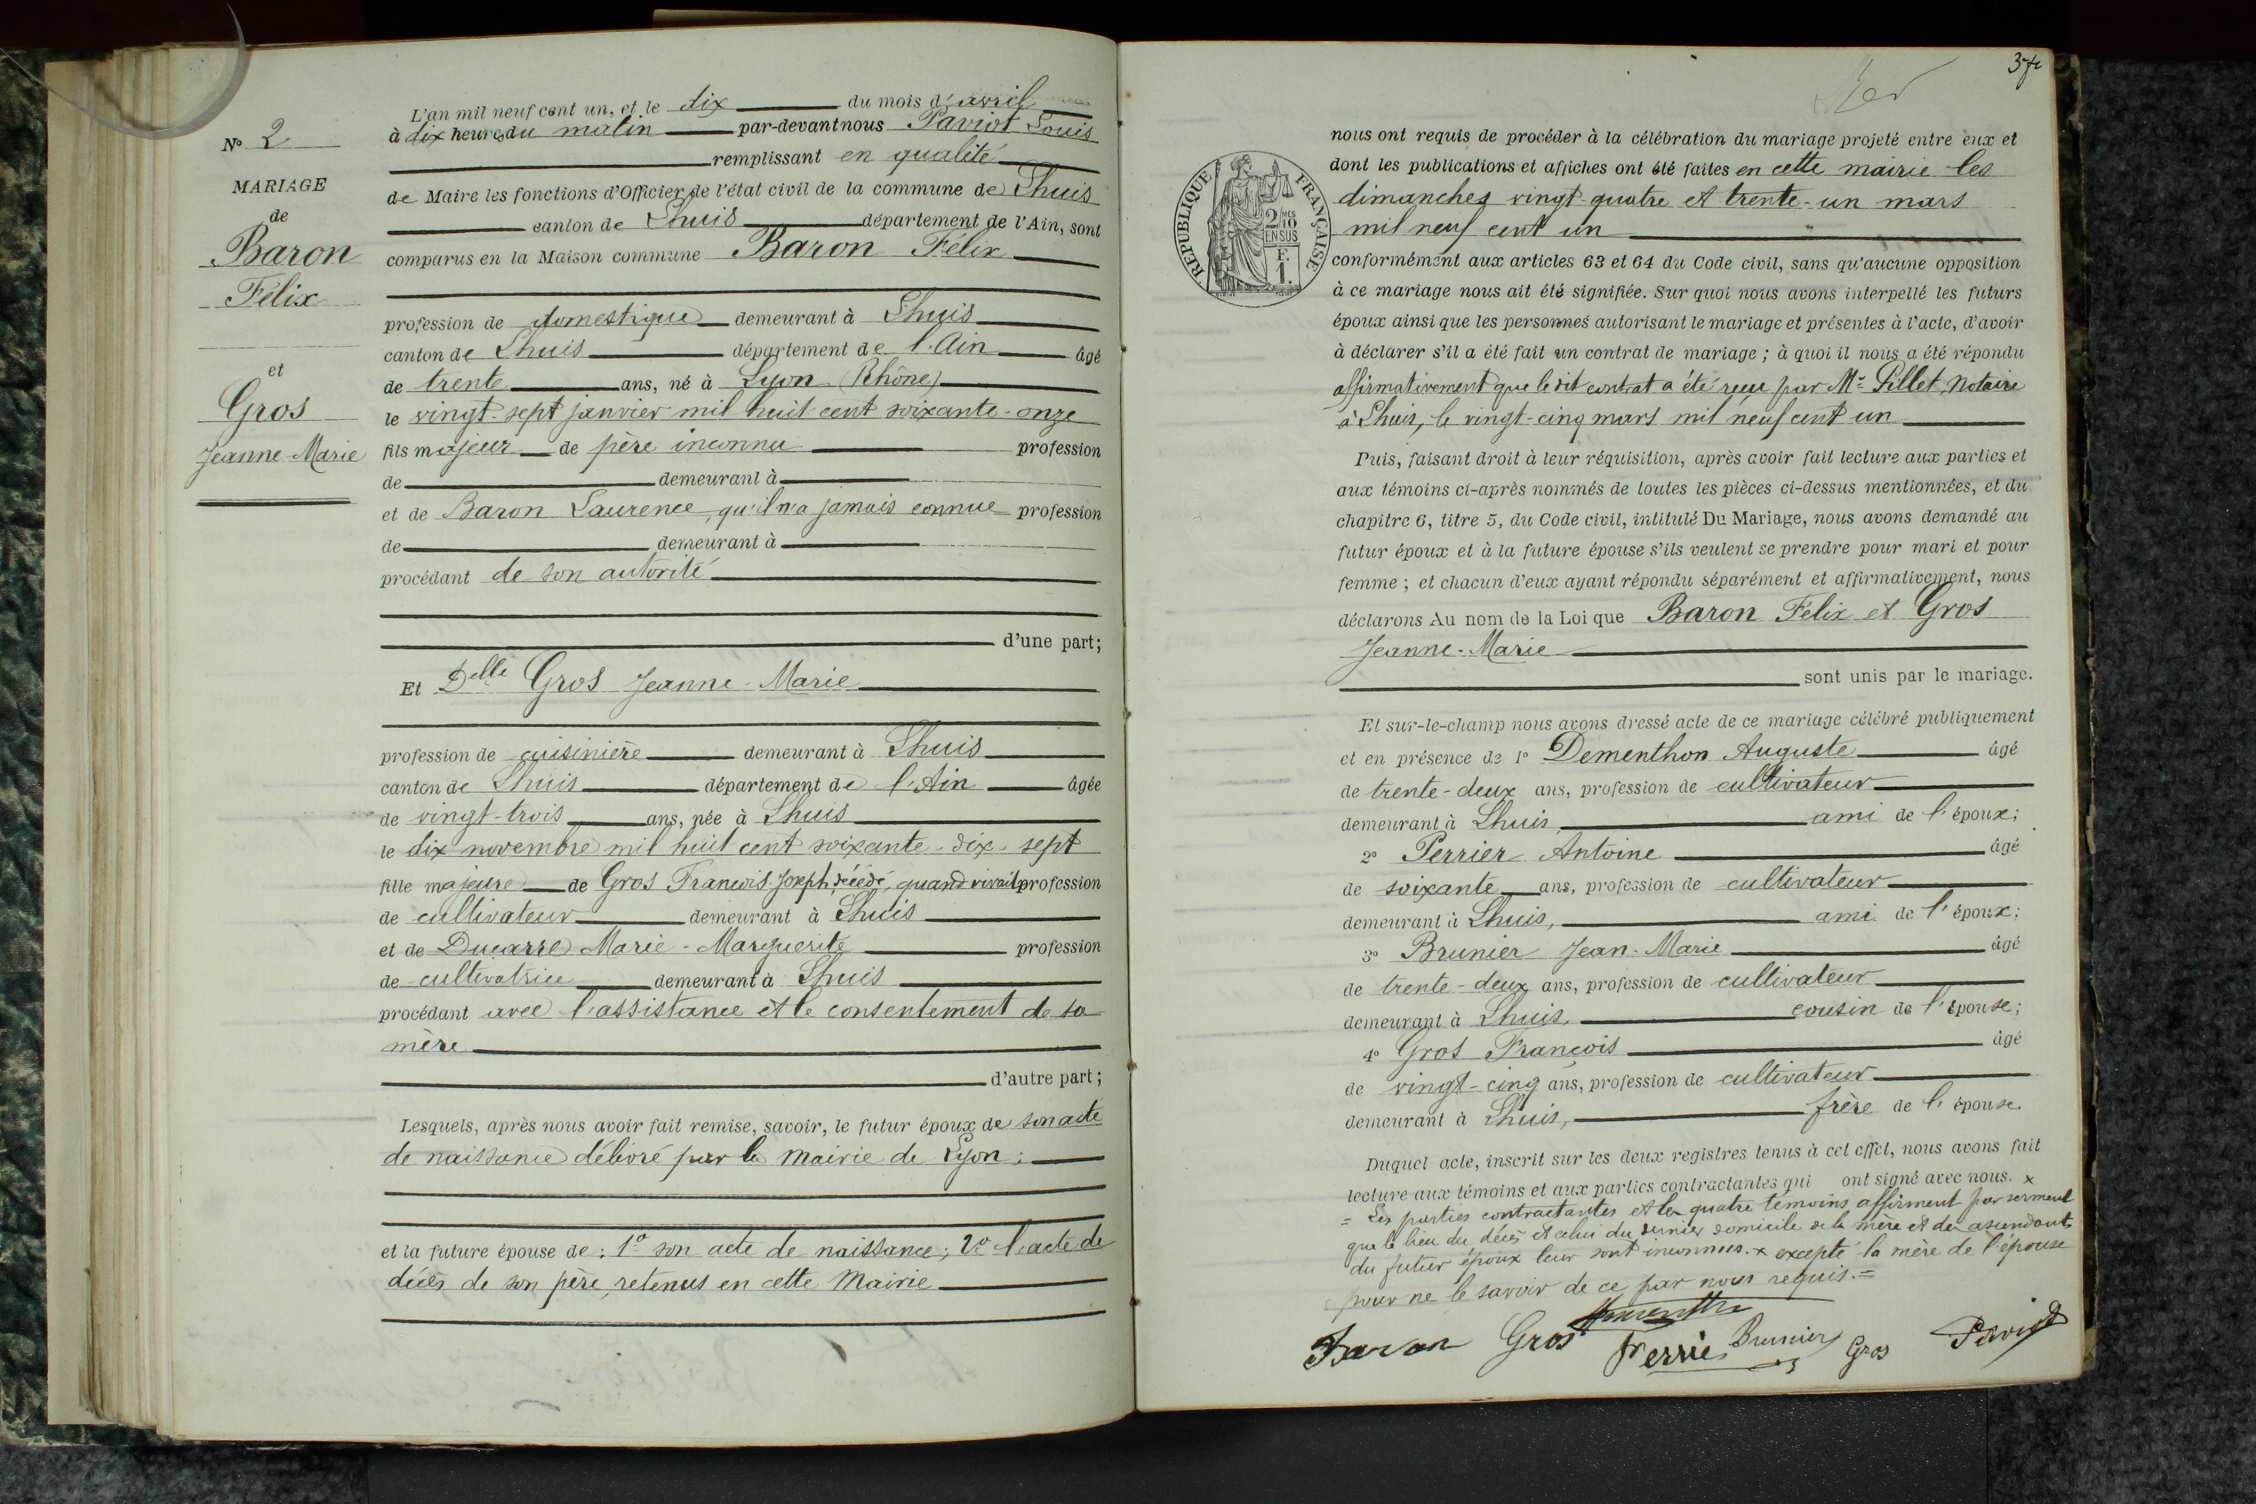 N° 2
MARIAGE
de
Baron
Félix
et
Gros
Jeanne Marie
L'an mil neuf cent un, et le dix du mois d'avril
à dix heures du matin par-devant nous Paviot Louis
remplissant en qualité
de Maire les fonctions d'Officier de l'état civil de la commune de Lhuis
canton de Lhuis département de l'Ain, sont
comparus en la Maison commune Baron Félix
profession de domestique demeurant à Lhuis
canton de Lhuis département de l'Ain âgé
de trente ans, né à Lyon (Rhône)
le vingt-sept janvier mil huit cent soixante-onze
fils majeur de père inconnu profession
de demeurant à
et de Baron Laurence, qu'il n'a jamais connue profession
de demeurant à
procédant de son autorité
d'une part;
Et Delle Gros Jeanne-Marie
profession de cuisinière demeurant à Lhuis
canton de Lhuis département de l'Ain âgée
de vingt-trois ans, née à Lhuis
le dix novembre mil huit cent soixante-dix-sept
fille majeure de Gros François Joseph décédé, quand vivait profession
de cultivateur demeurant à Lhuis
et de Ducarre Marie-Marguerite profession
de cultivatrice demeurant à Lhuis
procédant avec l'assistance et le consentement de sa
mère
d'autre part;
Lesquels, après nous avoir fait remise, savoir, le futur époux de son acte
de naissance délivré par la mairie de Lyon;
et la future épouse de: 1° son acte de naissance; 2° l'acte de
décès de son père, retenus en cette Mairie
37
RÉPUBLIQUE FRANÇAISE
2/10
EN SUS
F.
1.
nous ont requis de procéder à la célébration du mariage projeté entre eux et
dont les publications et affiches ont été faites en cette mairie les
dimanches vingt-quatre et trente-un mars
mil neuf cent un
conformément aux articles 63 et 64 du Code civil, sans qu'aucune opposition
à ce mariage nous ait été signifiée. Sur quoi nous avons interpellé les futurs
époux ainsi que les personnes autorisant le mariage et présentes à l'acte, d'avoir
à déclarer s'il a été fait un contrat de mariage; à quoi il nous a été répondu
affirmativement que le dit contrat a été reçu par Me Pillet, Notaire
à Lhuis, le vingt-cinq mars mil neuf cent un
Puis, faisant droit à leur réquisition, après avoir fait lecture aux parties et
aux témoins ci-après nommés de toutes les pièces ci-dessus mentionnées, et du
chapitre 6, titre 5, du Code civil, intitulé Du Mariage, nous avons demandé au
futur époux et à la future épouse s'ils veulent se prendre pour mari et pour
femme; et chacun d'eux ayant répondu séparément et affirmativement, nous
déclarons Au nom de la Loi que Baron Félix et Gros
Jeanne-Marie
sont unis par le mariage.
Et sur-le-champ nous avons dressé acte de ce mariage célébré publiquement
et en présence de 1° Dementhon Auguste âgé
de trente-deux ans, profession de cultivateur
demeurant à Lhuis, ami de l'époux;
2° Perrier Antoine âgé
de soixante ans, profession de cultivateur
demeurant à Lhuis, ami de l'époux;
3° Brunier Jean-Marie âgé
de trente-deux ans, profession de cultivateur
demeurant à Lhuis, cousin de l'épouse;
4° Gros François âgé
de vingt-cinq ans, profession de cultivateur
demeurant à Lhuis, frère de l'épouse.
Duquel acte, inscrit sur les deux registres tenus à cet effet, nous avons fait
lecture aux témoins et aux parties contractantes qui ont signé avec nous. x
= Les parties contractantes et les quatre témoins affirment par serment
que le lieu du décès et celui du dernier domicile de la mère et des ascendants
du futur époux leur sont inconnus. x excepté la mère de l'épouse
pour ne le savoir de ce par nous requis. =
Baron Gros Perrier Brunier Gros Paviot